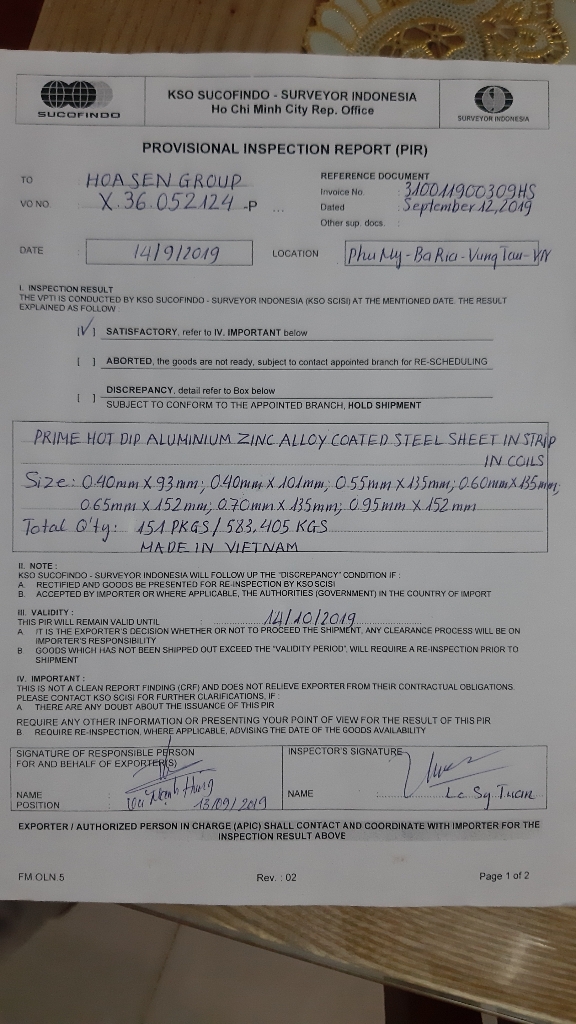 SUCOFINDO
KSO SUCOFINDO - SURVEYOR INDONESIA
Ho Chi Minh City Rep. Office
SURVEYOR INDONESIA
PROVISIONAL INSPECTION REPORT (PIR)
TO HOA SEN GROUP
VO NO. X.36.052124 -P ...
REFERENCE DOCUMENT
Invoice No. : 310011900309HS
Dated : September 12, 2019
Other sup. docs. :
DATE 14/9/2019 LOCATION Phu My - Ba Ria - Vung Tau - VN
I. INSPECTION RESULT
THE VPTI IS CONDUCTED BY KSO SUCOFINDO - SURVEYOR INDONESIA (KSO SCISI) AT THE MENTIONED DATE. THE RESULT
EXPLAINED AS FOLLOW :
[V] SATISFACTORY, refer to IV. IMPORTANT below
[ ] ABORTED, the goods are not ready, subject to contact appointed branch for RE-SCHEDULING
[ ] DISCREPANCY, detail refer to Box below
SUBJECT TO CONFORM TO THE APPOINTED BRANCH, HOLD SHIPMENT
PRIME HOT DIP ALUMINIUM ZINC ALLOY COATED STEEL SHEET IN STRIP
IN COILS
Size: 0.40mm X 93mm; 0.40mm X 101mm; 0.55mm X 135mm; 0.60mm X 135mm;
0.65mm X 152mm; 0.70mm X 135mm; 0.95mm X 152mm
Total Q'ty: 151 PKGS / 583,405 KGS
MADE IN VIETNAM
II. NOTE :
KSO SUCOFINDO - SURVEYOR INDONESIA WILL FOLLOW UP THE "DISCREPANCY" CONDITION IF :
A. RECTIFIED AND GOODS BE PRESENTED FOR RE-INSPECTION BY KSO SCISI
B. ACCEPTED BY IMPORTER OR WHERE APPLICABLE, THE AUTHORITIES (GOVERNMENT) IN THE COUNTRY OF IMPORT
III. VALIDITY :
THIS PIR WILL REMAIN VALID UNTIL : 14/10/2019
A IT IS THE EXPORTER'S DECISION WHETHER OR NOT TO PROCEED THE SHIPMENT, ANY CLEARANCE PROCESS WILL BE ON
IMPORTER'S RESPONSIBILITY
B GOODS WHICH HAS NOT BEEN SHIPPED OUT EXCEED THE "VALIDITY PERIOD", WILL REQUIRE A RE-INSPECTION PRIOR TO
SHIPMENT
IV. IMPORTANT :
THIS IS NOT A CLEAN REPORT FINDING (CRF) AND DOES NOT RELIEVE EXPORTER FROM THEIR CONTRACTUAL OBLIGATIONS.
PLEASE CONTACT KSO SCISI FOR FURTHER CLARIFICATIONS, IF :
A THERE ARE ANY DOUBT ABOUT THE ISSUANCE OF THIS PIR
REQUIRE ANY OTHER INFORMATION OR PRESENTING YOUR POINT OF VIEW FOR THE RESULT OF THIS PIR
B. REQUIRE RE-INSPECTION, WHERE APPLICABLE, ADVISING THE DATE OF THE GOODS AVAILABILITY
SIGNATURE OF RESPONSIBLE PERSON
FOR AND BEHALF OF EXPORTER(S)
NAME
POSITION : 13/09/2019
INSPECTOR'S SIGNATURE
NAME : Le Sy Tuan
EXPORTER / AUTHORIZED PERSON IN CHARGE (APIC) SHALL CONTACT AND COORDINATE WITH IMPORTER FOR THE
INSPECTION RESULT ABOVE
FM.OLN.5 Rev. : 02 Page 1 of 2